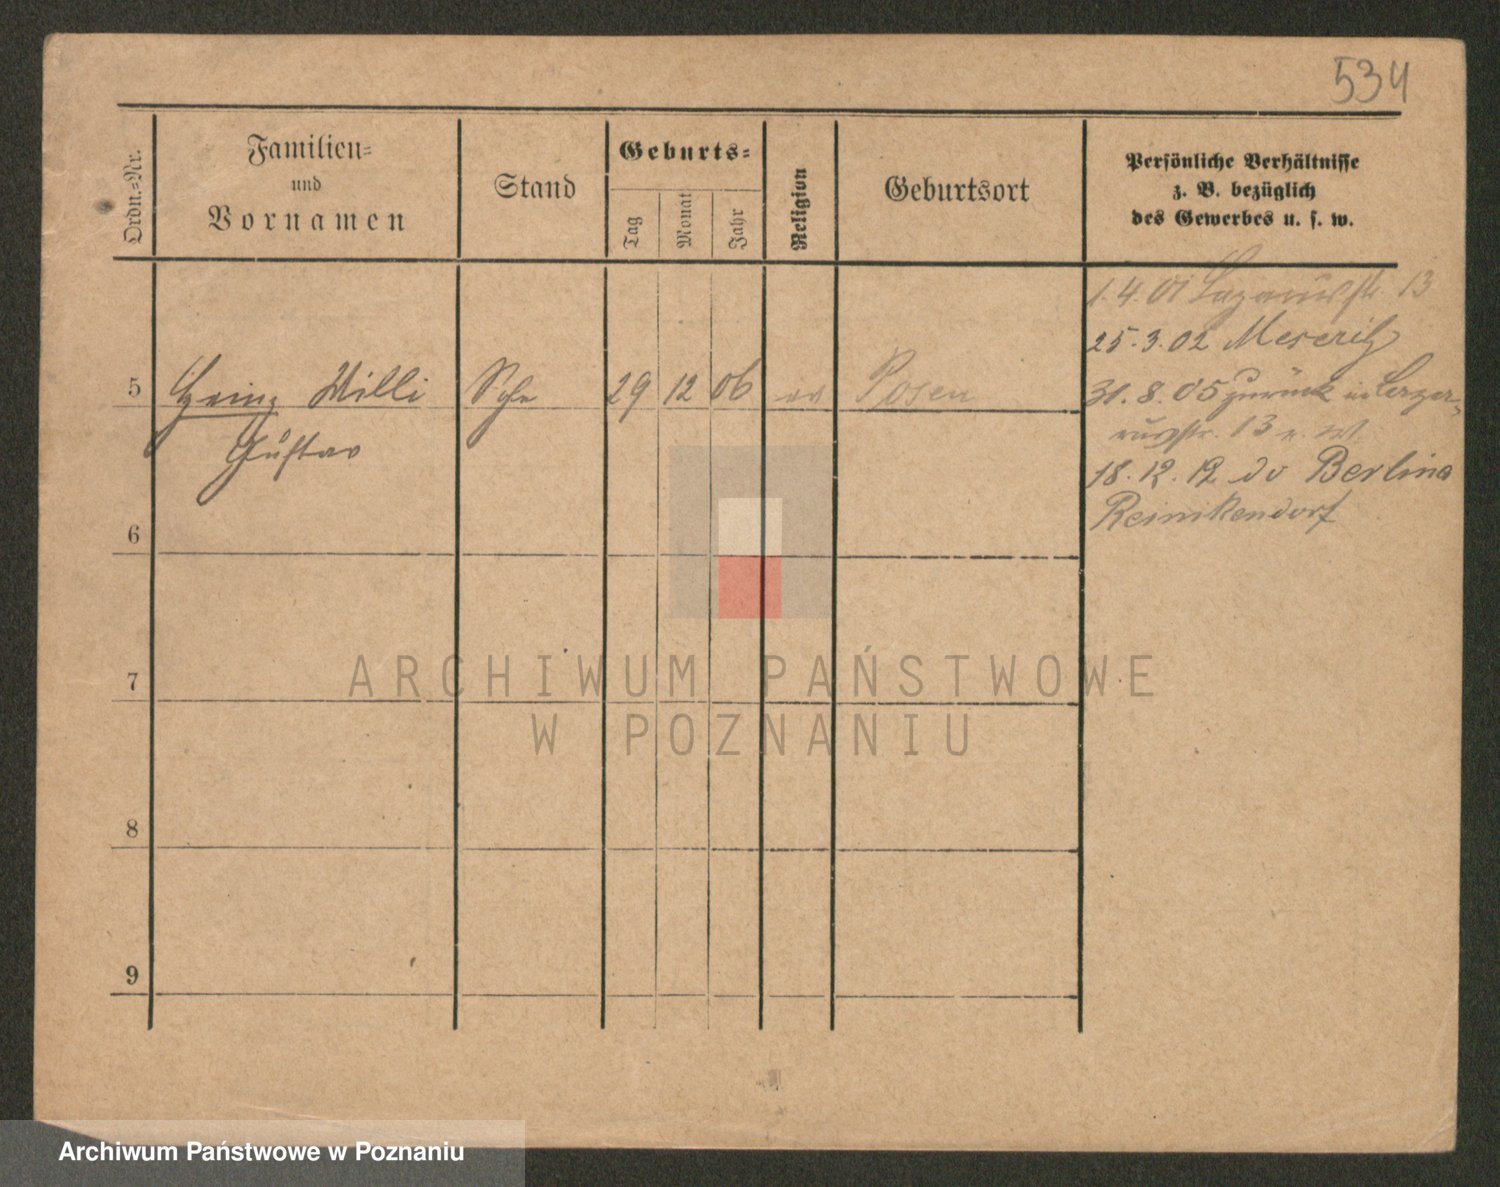 534
Ordn.-Nr.
Familien-
und
Vornamen
Stand
Geburts-
Tag
Monat
Jahr
Religion
Geburtsort
Persönliche Verhältnisse
z. B. bezüglich
des Gewerbes u. s. w.
1.4.01 Lazarusstr. 13
25.3.02 Meseritz
5 Heinz Willi Sohn 29 12 06 ev Posen
31.8.05 zurück in Laza-
Gustav
russtr. 13
18.12.12 Berlin
6
Reinikendorf
7
8
9
ARCHIWUM PAŃSTWOWE
W POZNANIU
Archiwum Państwowe w Poznaniu